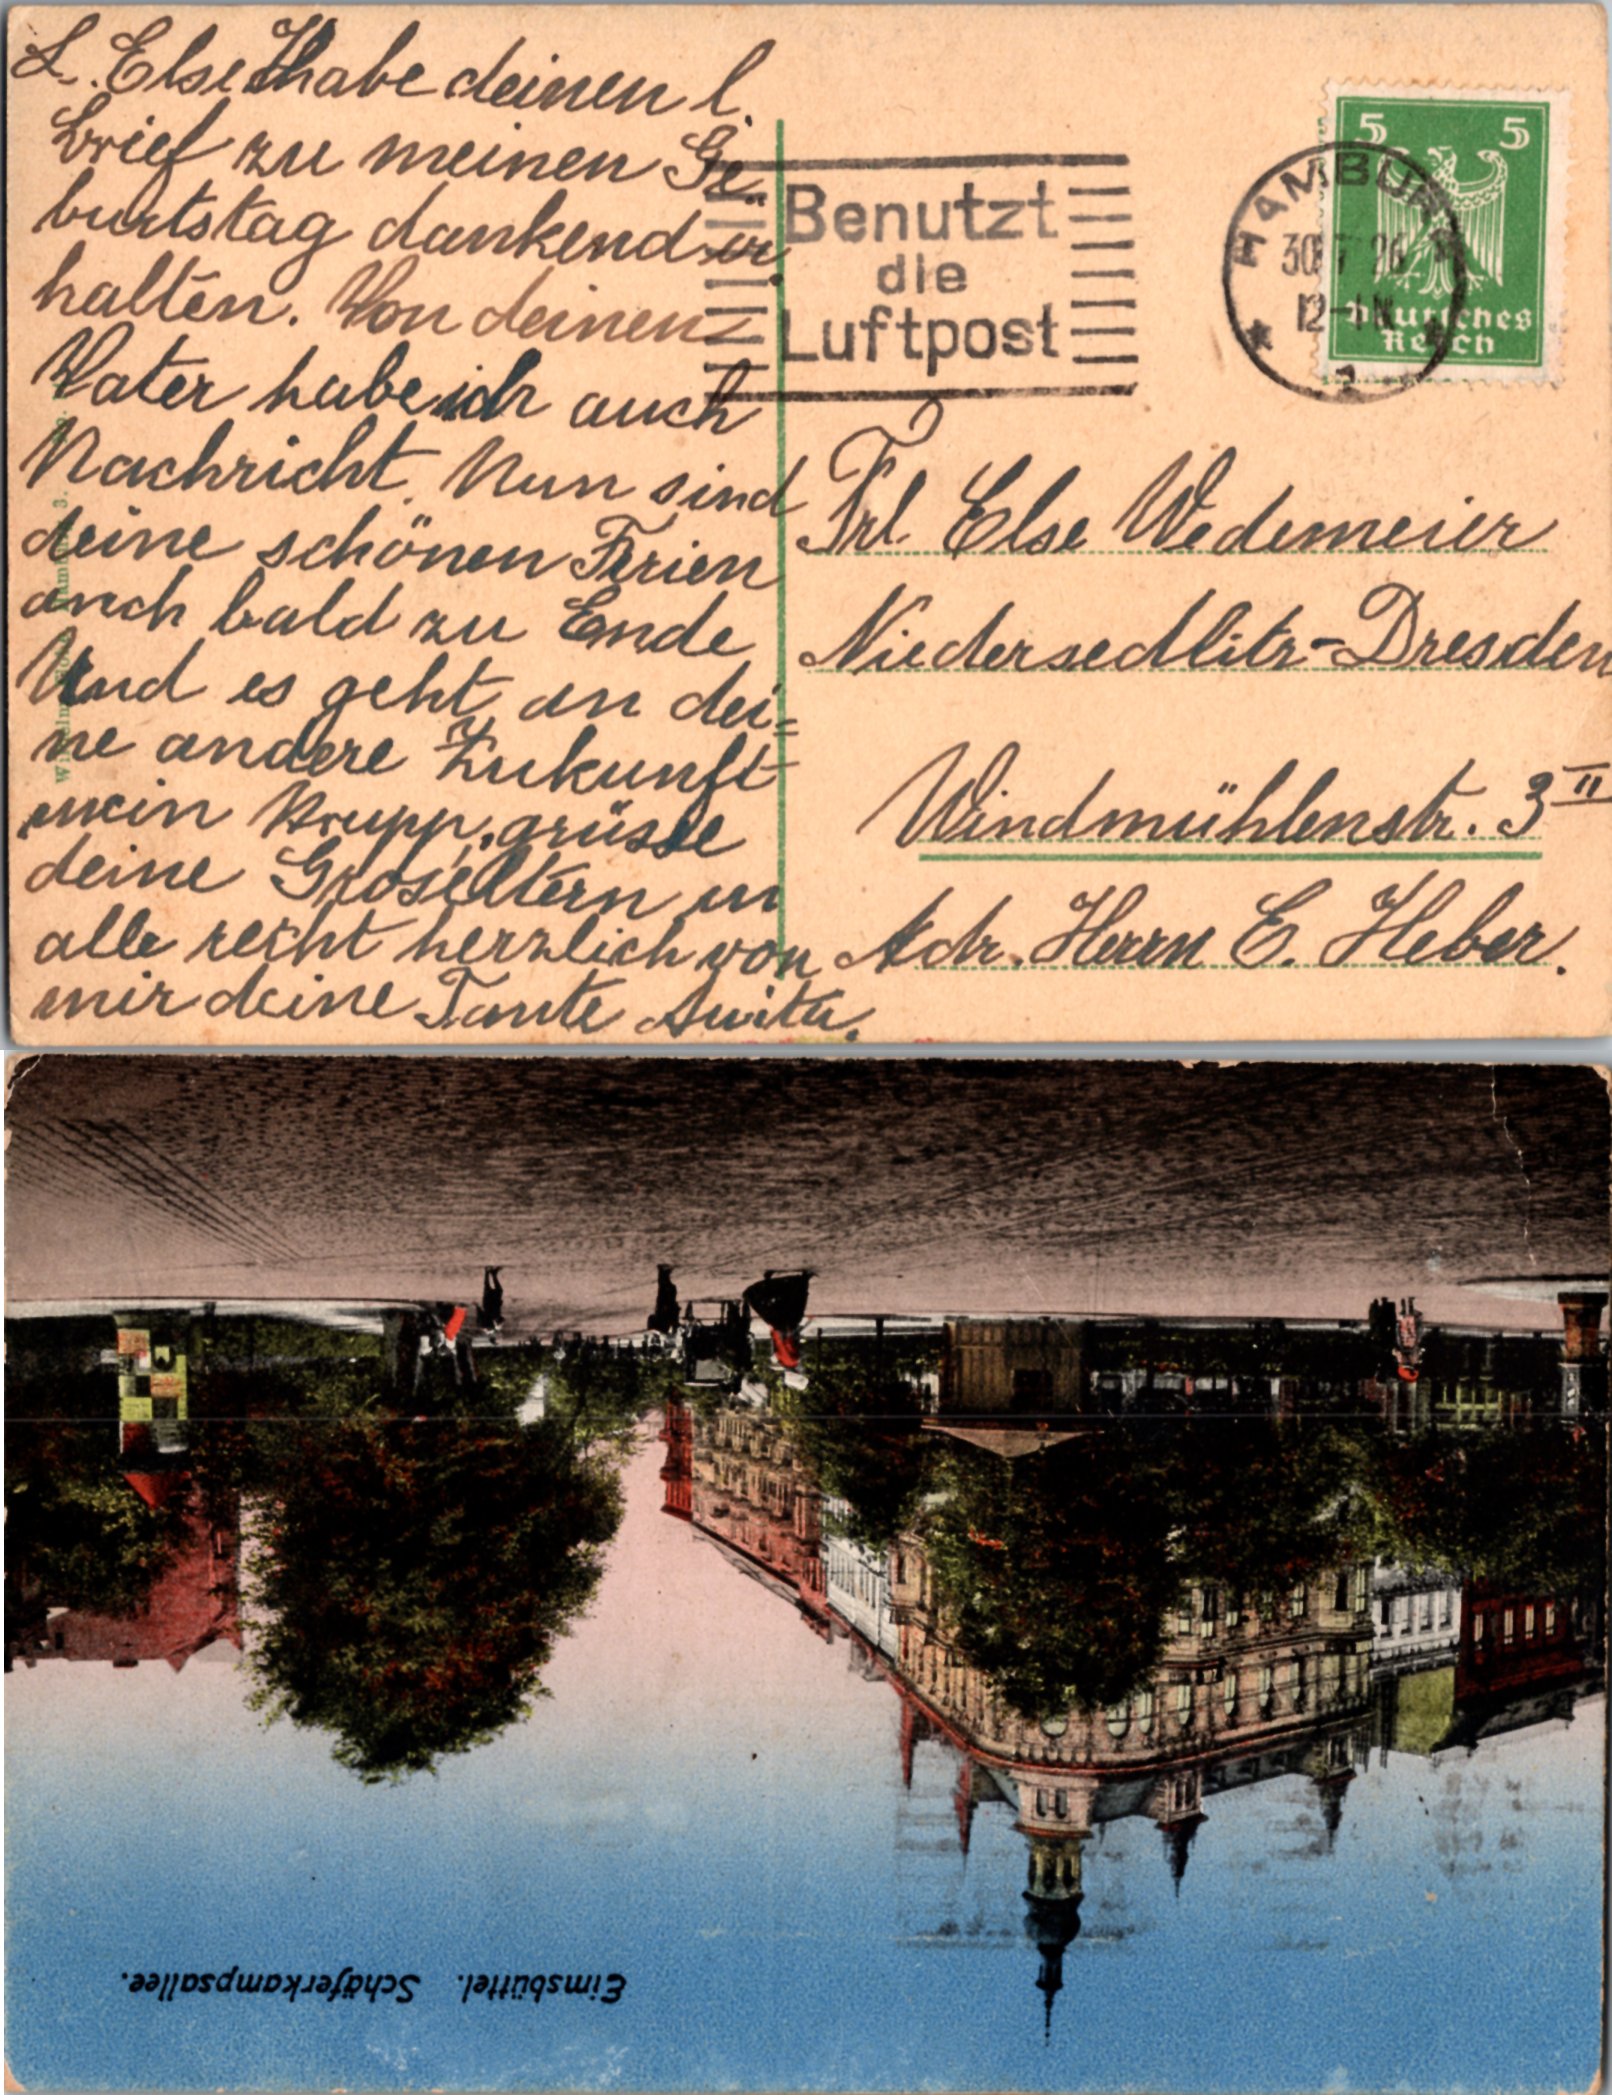 L. Else Habe deinen l.
brief zu meinen Ge-
burtstag dankend er
halten. Von deinen
Vater habe ich auch
Nachricht. Nun sind
deine schönen Ferien
auch bald zu Ende
Und es geht an dei=
ne andere Zukunft
mein Krupp, grüsse
deine Groseltern un
alle recht herzlich von
mir deine Tante Anita.
Benutzt
die
Luftpost
HAMBURG
30 7 26
12-1 N
1
5 5
Deutsches
Reich
Frl. Else Wedemeier
Niedersedlitz-Dresden
Windmühlenstr. 3 II
Adr. Herrn E. Heber.
Eimsbüttel. Schäferkampsallee.